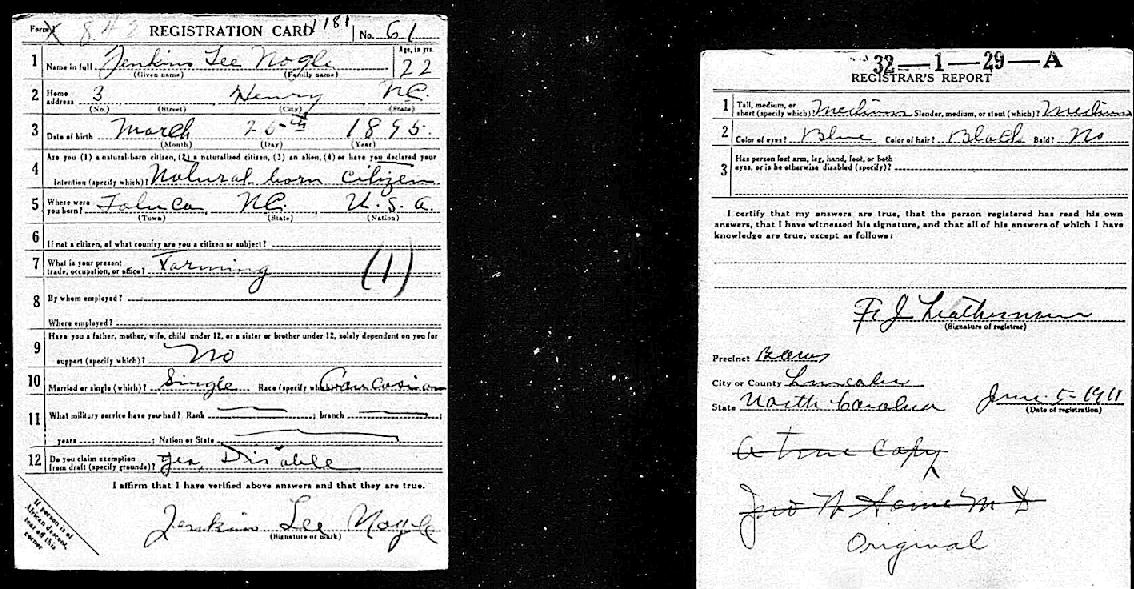 Form 1 REGISTRATION CARD 1181 No. 61
1 Name in full Jenkins Lee Nogle Age, in yrs. 22
(Given name) (Family name)
2 Home address 3 Henry N.C.
(No.) (Street) (City) (State)
3 Date of birth March 25th 1895.
(Month) (Day) (Year)
Are you (1) a natural-born citizen, (2) a naturalized citizen, (3) an alien, (4) or have you declared your
4 intention (specify which)? Natural born citizen
5 Where were you born? Toluca N.C. U.S.A.
(Town) (State) (Nation)
6 If not a citizen, of what country are you a citizen or subject?
7 What is your present trade, occupation, or office? Farming (1)
8 By whom employed?
Where employed?
Have you a father, mother, wife, child under 12, or a sister or brother under 12, solely dependent on you for
9 support (specify which)? No
10 Married or single (which)? Single Race (specify which)? Caucasian
11 What military service have you had? Rank ; branch
years ; Nation or State
12 Do you claim exemption from draft (specify grounds)? Yes, Disable
I affirm that I have verified above answers and that they are true.
Jenkins Lee Nogle
(Signature or mark)
If person is of
African descent,
tear off this
corner.
32—1—29—A
REGISTRAR'S REPORT
1 Tall, medium, or short (specify which)? Medium Slender, medium, or stout (which)? Medium
2 Color of eyes? Blue Color of hair? Black Bald? No
3 Has person lost arm, leg, hand, foot, or both eyes, or is he otherwise disabled (specify)?
I certify that my answers are true, that the person registered has read his own
answers, that I have witnessed his signature, and that all of his answers of which I have
knowledge are true, except as follows:
Leatherman
(Signature of registrar)
Precinct
City or County Lincoln
State North Carolina June 5-1911
(Date of registration)
A true copy
Original